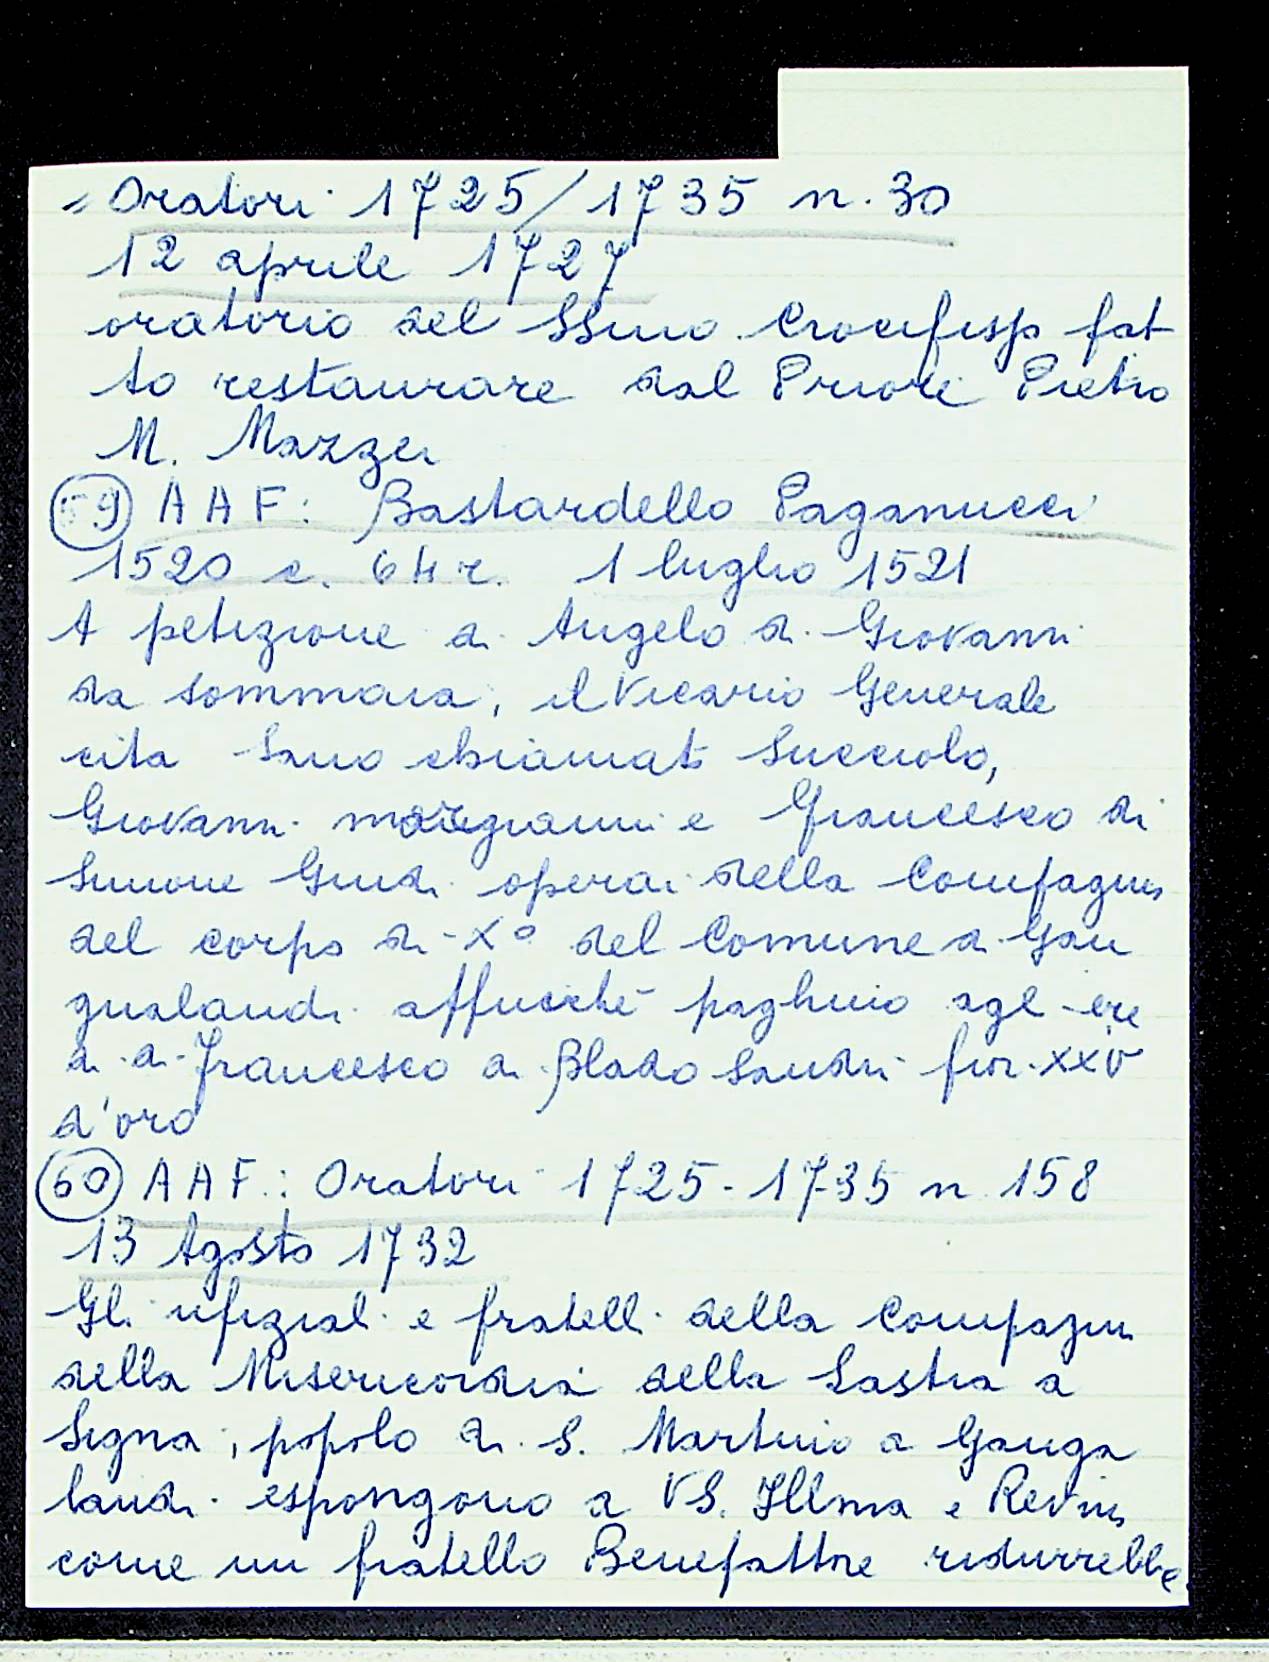 " Oratori 1725/1735 n. 30
12 aprile 1727
oratorio del SSmo Crocifisso fat
to restaurare dal Priore Pietro
M. Mazzei
59 AAF: Bastardello Paganucci
1520 c. 64 r. 1 luglio 1521
A petizione di Angelo di Giovanni
da Sommaia, il Vicario Generale
cita Sano chiamato Succiolo,
Giovanni e Francesco di
Simone Guidi operai della Compagnia
del corpo di Xº del Comune a Gan
gualandi affinché paghino agli ere
di di Francesco di Blado Sandri fior. XXV
d'oro
60 AAF: Oratori 1725-1735 n 158
13 Agosto 1732
Gli ufiziali e fratelli della Compagnia
della Misericordia della Lastra a
Signa, popolo di S. Martino a Ganga
landi espongono a VS. Illma e Revma
come un fratello Benefattore ridurrebbe